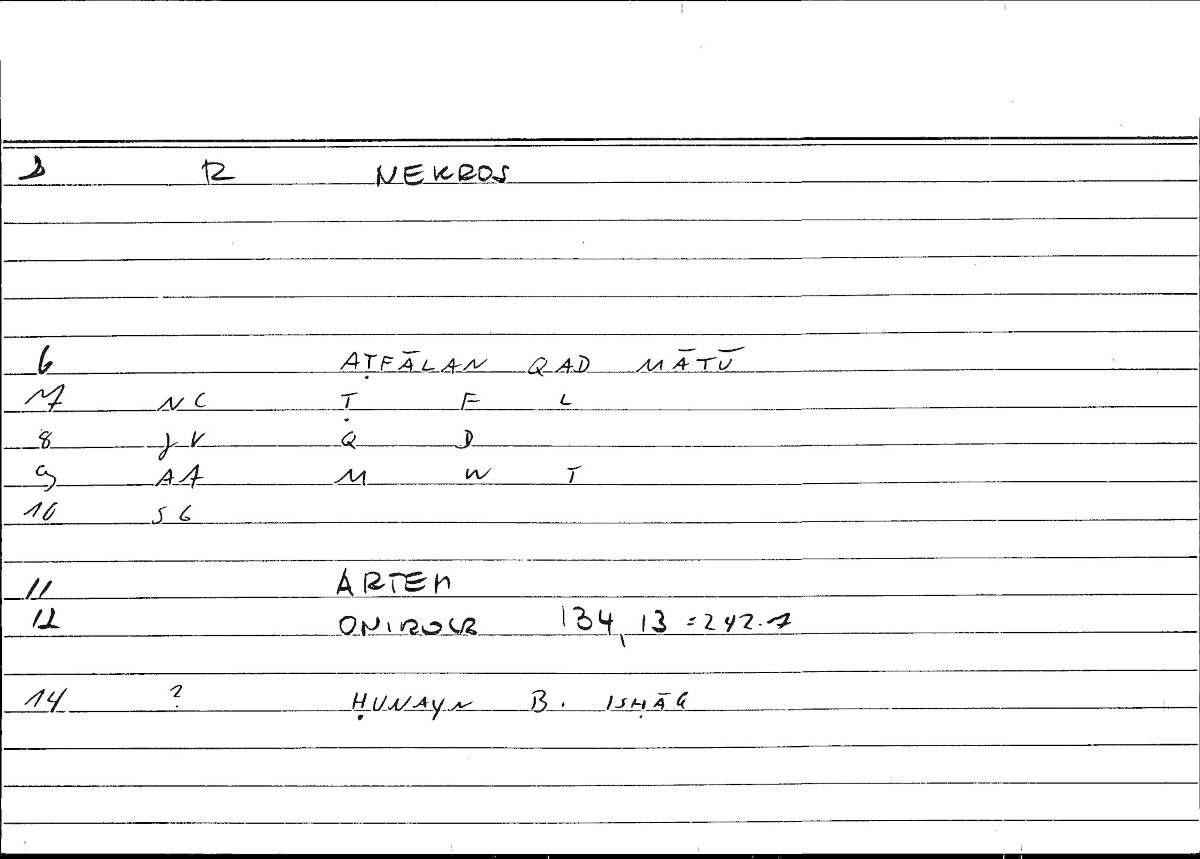 1 R NEKROS
6 AṬFĀLAN QAD MĀTŪ
7 NC Ṭ F L
8 JV Q D
9 AA M W T
10 SG
11 ARTEM
12 ONIROCR 134, 13 = 242.7
14 ? ḤUNAYN B. ISḤĀQ